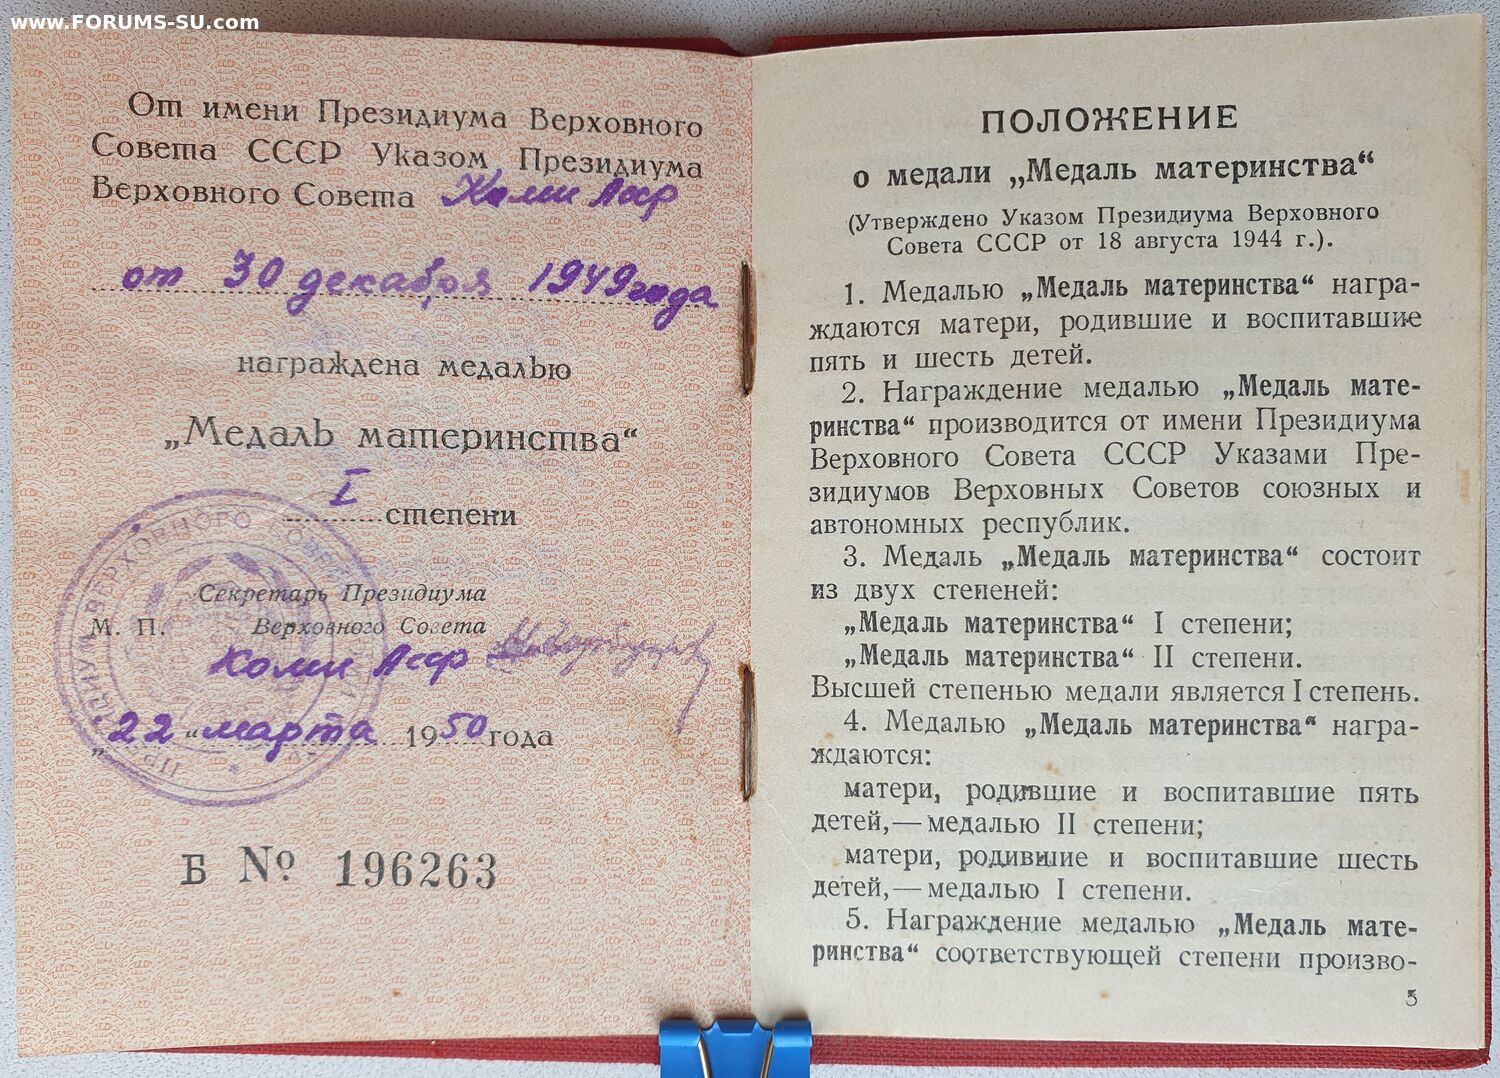 www.FORUMS-SU.com
От имени Президиума Верховного
Совета СССР Указом Президиума
Верховного Совета Коми Асср
от 30 декабря 1949 года
награждена медалью
„Медаль материнства“
I
степени
Секретарь Президиума
М. П. Верховного Совета
Коми Асср
„22“ марта 1950 года
Б № 196263
ПОЛОЖЕНИЕ
о медали „Медаль материнства“
(Утверждено Указом Президиума Верховного
Совета СССР от 18 августа 1944 г.).
1. Медалью „Медаль материнства“ награ-
ждаются матери, родившие и воспитавшие
пять и шесть детей.
2. Награждение медалью „Медаль мате-
ринства“ производится от имени Президиума
Верховного Совета СССР Указами Пре-
зидиумов Верховных Советов союзных и
автономных республик.
3. Медаль „Медаль материнства“ состоит
из двух степеней:
„Медаль материнства“ I степени;
„Медаль материнства“ II степени.
Высшей степенью медали является I степень.
4. Медалью „Медаль материнства“ награ-
ждаются:
матери, родившие и воспитавшие пять
детей,—медалью II степени;
матери, родившие и воспитавшие шесть
детей,—медалью I степени.
5. Награждение медалью „Медаль мате-
ринства“ соответствующей степени произво-
3